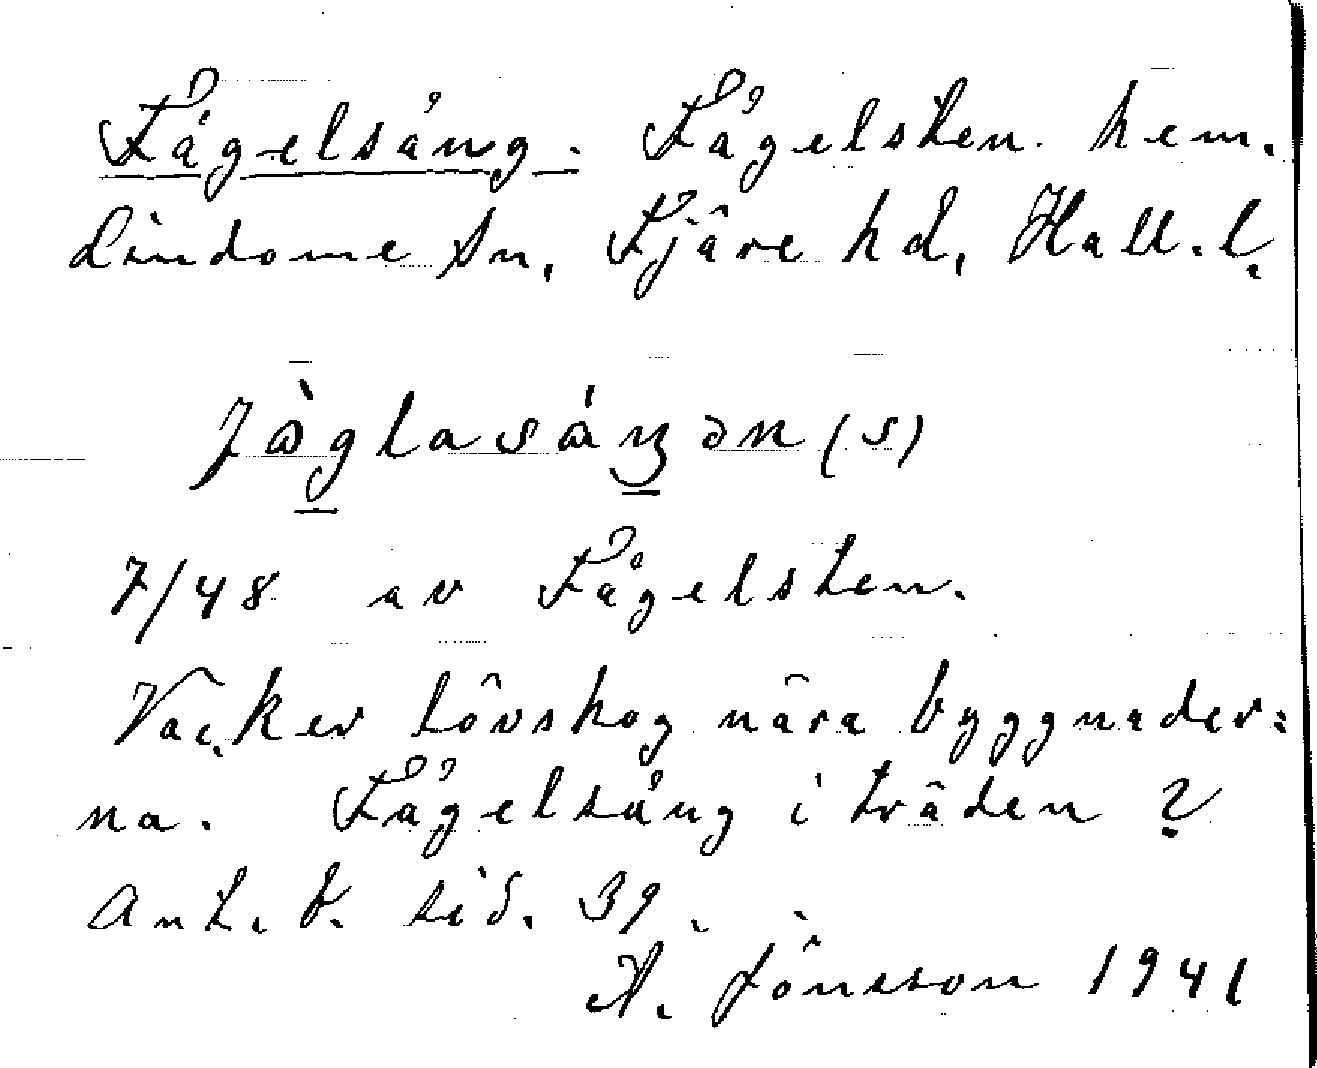 Fågelsång. Fågelsten. hem.
Lindome Sn. Fjäre hd, Hall. l.
fɷ̀glasáŋən (s)
7/48 av Fågelsten.
Vacker lövskog nära byggnader=
na. Fågelsång i träden?
Ant. b. sid. 39.
A. Jönsson 1941